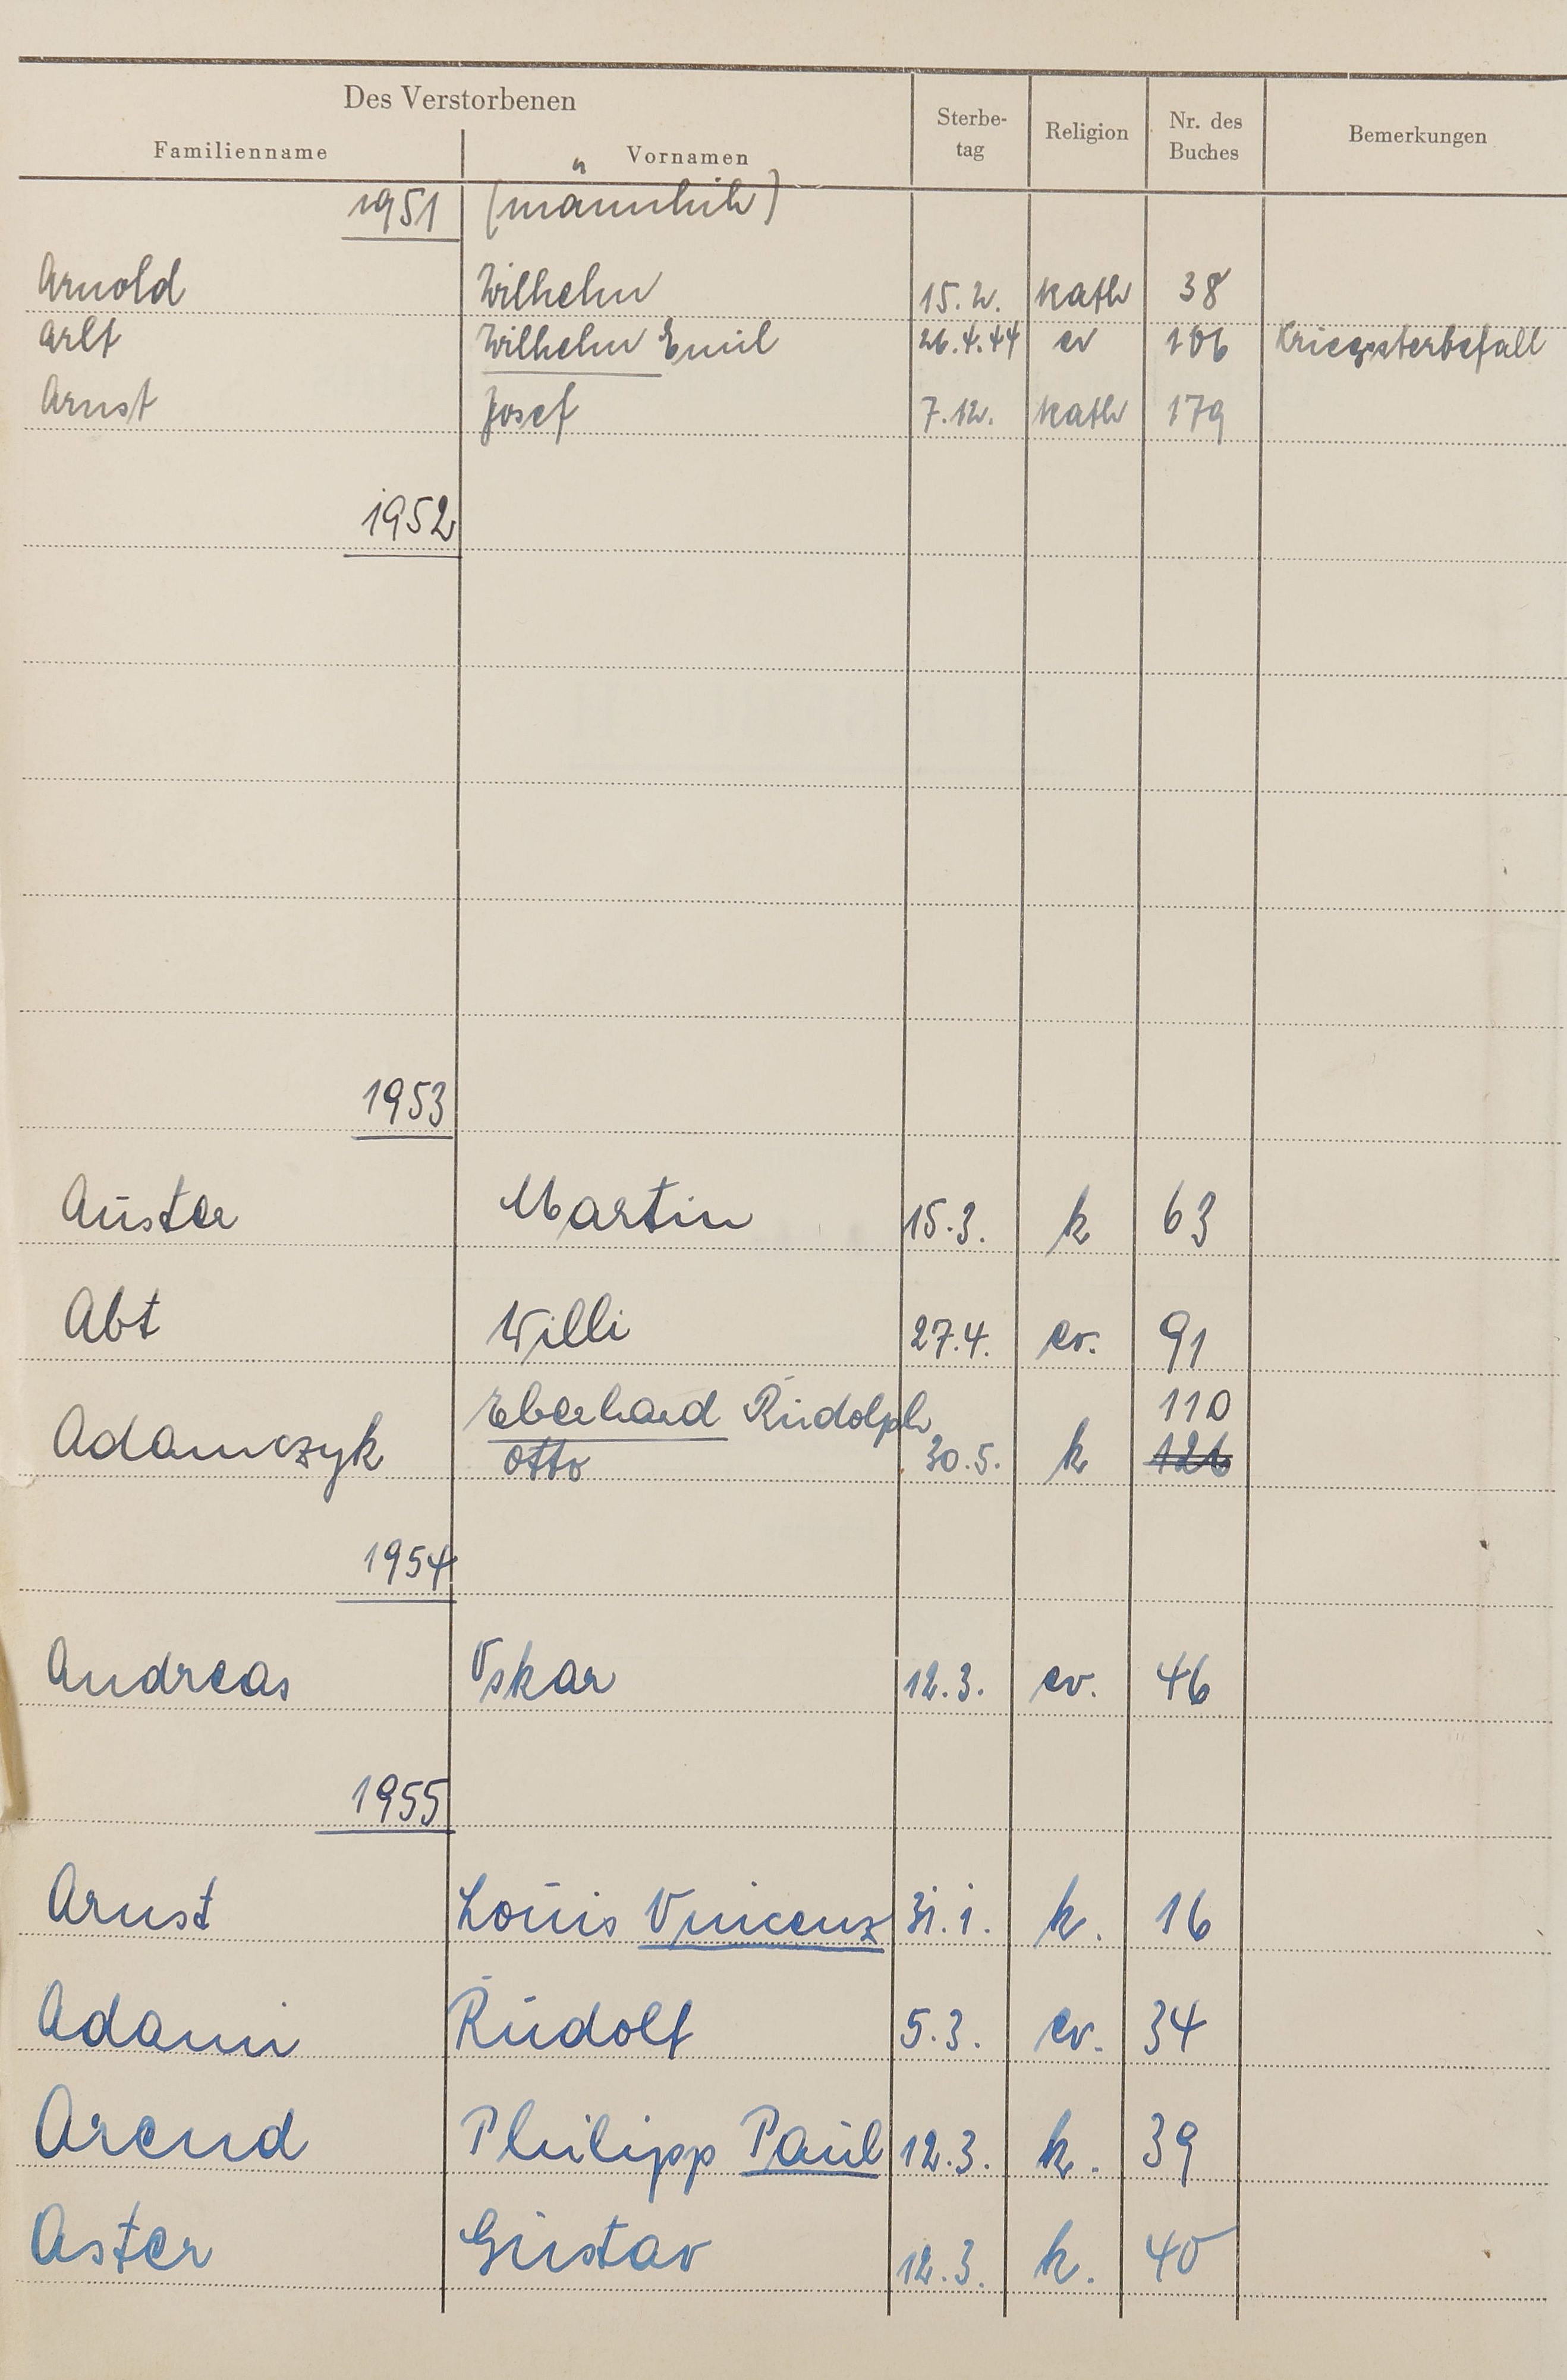 Des Verstorbenen
Familienname Vornamen Sterbe-tag Religion Nr. des Buches Bemerkungen
1951 (männlich)
Arnold Wilhelm 15.2. kath 38
Arlt Wilhelm Emil 26.4.44 ev 106 Kriegssterbefall
Arnst Josef 7.12. kath 179
1952
1953
Auster Martin 15.3. k 63
Abt Willi 27.4. ev. 91
Adamczyk Eberhard Rudolph 110
Otto 30.5. k 126
1954
Andreas Oskar 12.3. ev. 46
1955
Arnst Louis Vinicenz 31.1. k. 16
Adami Rudolf 5.3. ev. 34
Arend Philipp Paul 12.3. k. 39
Aster Gustav 12.3. k. 40